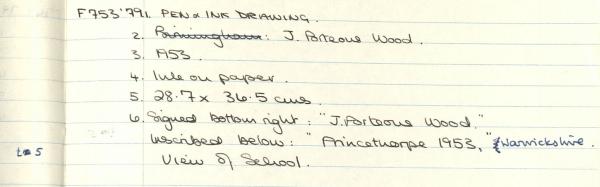 F753'79 1. PEN & INK DRAWING.
2. Birmingham: J. Porteous Wood.
3. 1953.
4. Ink on paper.
5. 28.7 x 36.5 cms.
6. Signed bottom right: "J. Porteous Wood."
Inscribed below: "Princethorpe 1953," Warwickshire.
to 5 View of School.